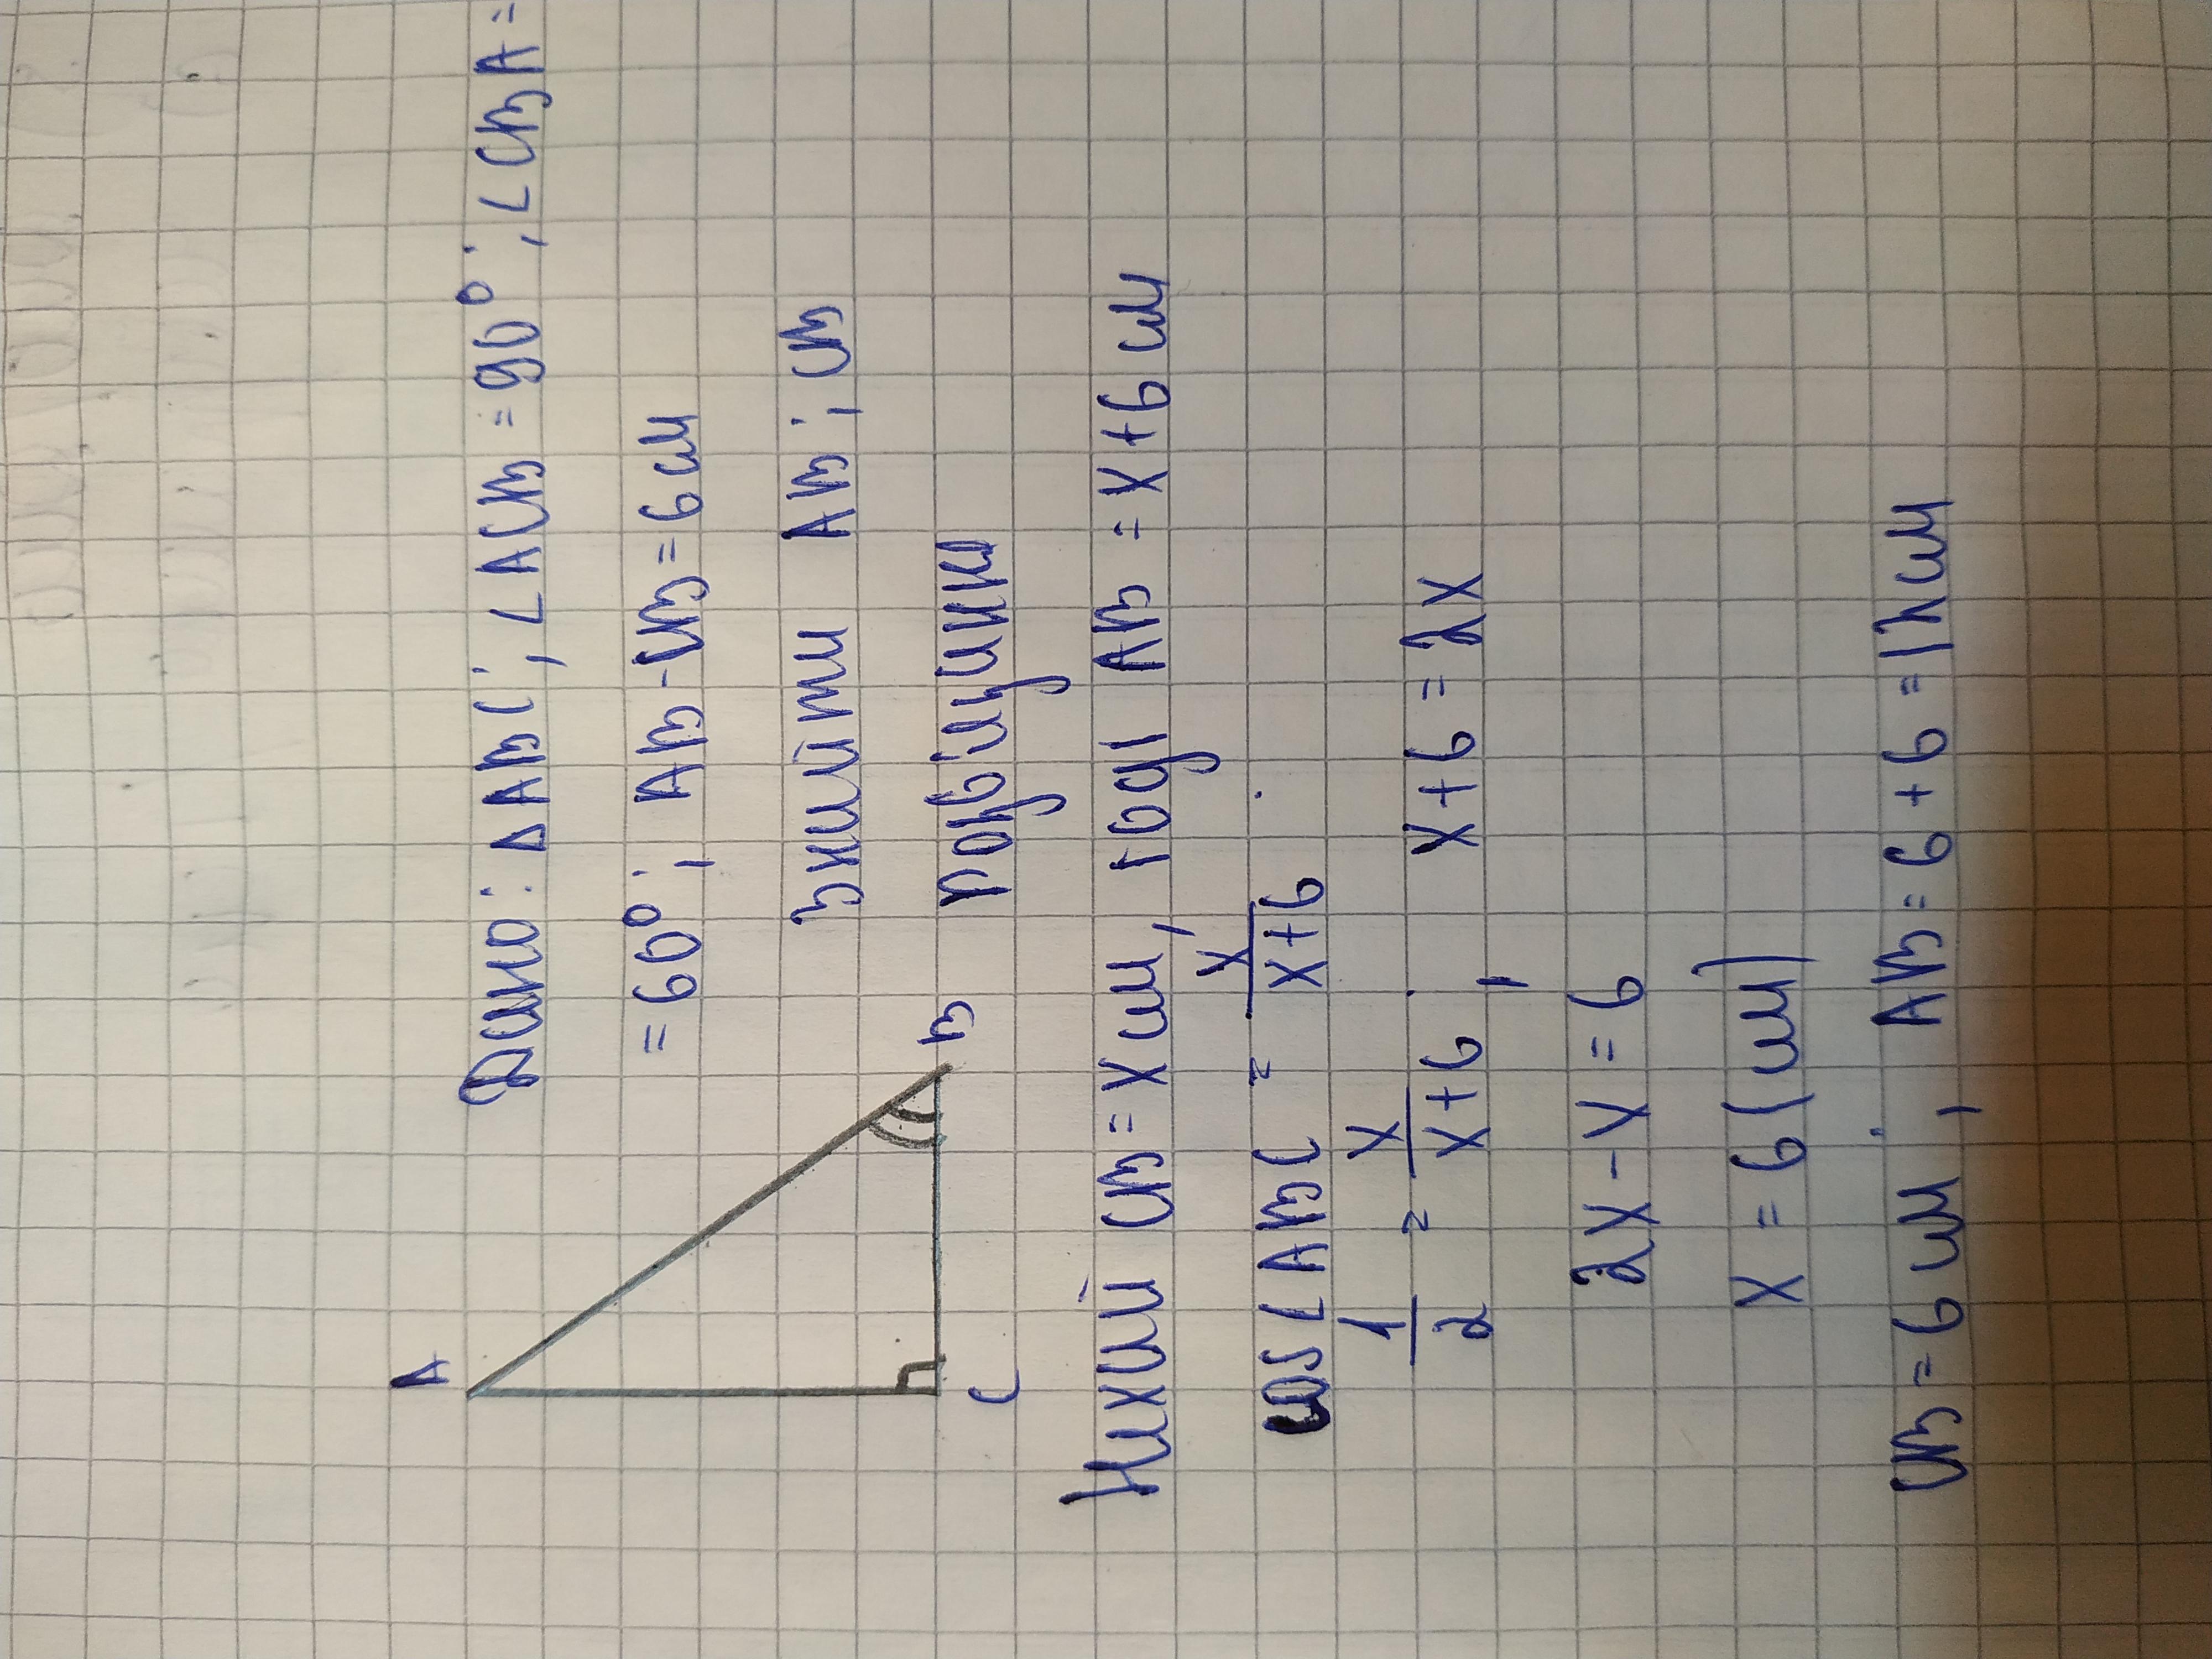 Дано: ΔABC; ∠ACB = 90°; ∠CBA =
= 60°; AB - CB = 6 см
Знайти AB; CB
A
B
C
Розв'язання
Нехай CB = x см, тоді AB = x + 6 см
cos ∠ABC = x/(x+6)
1/2 = x/(x+6); x + 6 = 2x
2x - x = 6
x = 6 (см)
CB = 6 см; AB = 6 + 6 = 12 см